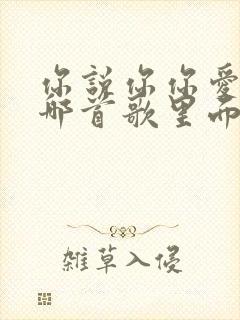 你說你你愛
那首歌里而
雜草入侵